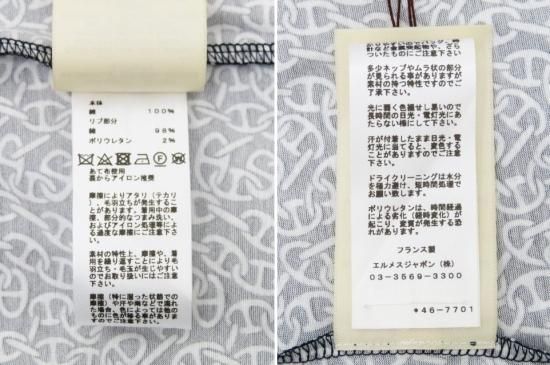 本体
綿 100%
リブ部分
綿 98%
ポリウレタン 2%
あて布使用
裏からアイロン推奨
摩擦によりアタリ(テカリ)、毛羽立ちが発生することがあります。着用中の摩擦、部分的なつまみ洗い、およびアイロン処理等による過度な摩擦にご注意下さい。
素材の特性上、摩擦や、着用を繰り返すことにより毛羽立ち・毛玉が生じやすいのでお取り扱いにはご注意下さい。
摩擦(特に湿った状態での摩擦)や汗や雨などで濡れた場合、色によっては他のものに色が移ることがありますので
ついたものにご注意下さい
多少ネップやムラ状の部分
が見られる事がありますが
素材の持つ特性ですのでご
了承下さい。
光に弱く色褪せし易いので
長時間の日光・電灯光にあ
たらない様にして下さい。
汗が付着したまま日光・電
灯光に当てると、変色する
ことがありますのでご注意
下さい。
ドライクリーニングは水分
を極力避け、短時間処理で
お願い致します。
ポリウレタンは、時間経過
による劣化(経時変化)が
起こり、変質が発生する恐
れがあります。
フランス製
エルメスジャポン(株)
03-3569-3300
*46-7701